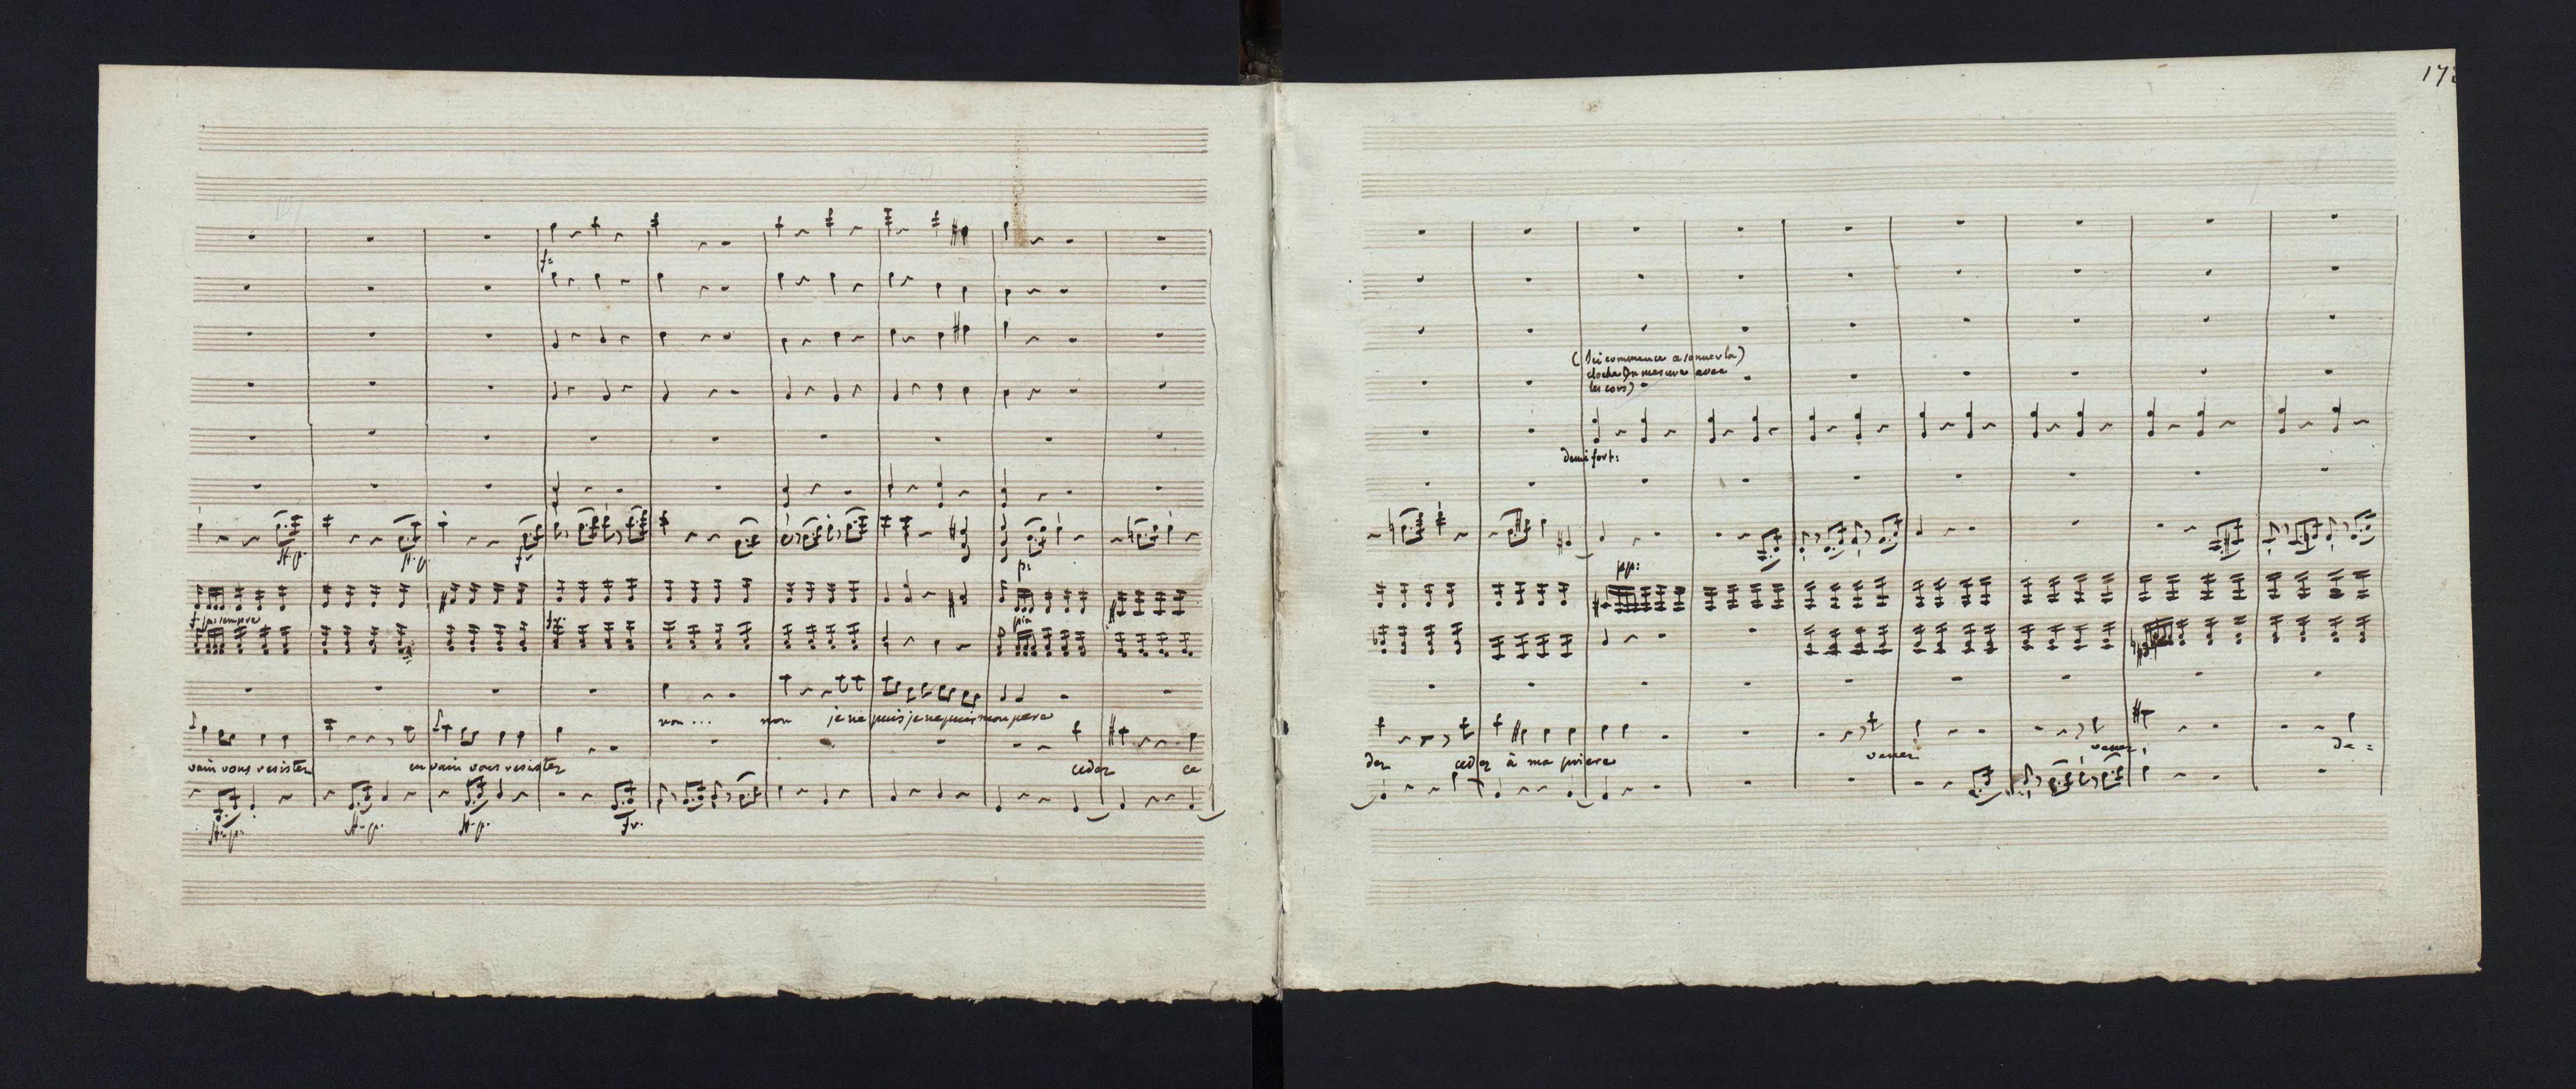 172
f:
ff. p.
ff. p.
fr
p:
f: pia sempre
fr:
pia
non ... non je ne puis je ne puis mon pere
vain vous resister en vain vous resister ceder ce
ff. p.
ff. p.
ff. p.
fr.
(Ici commence a sonner la)
cloche en mesure avec
les cors)
demi fort:
pp:
der ceder à ma priere venez venez, de=